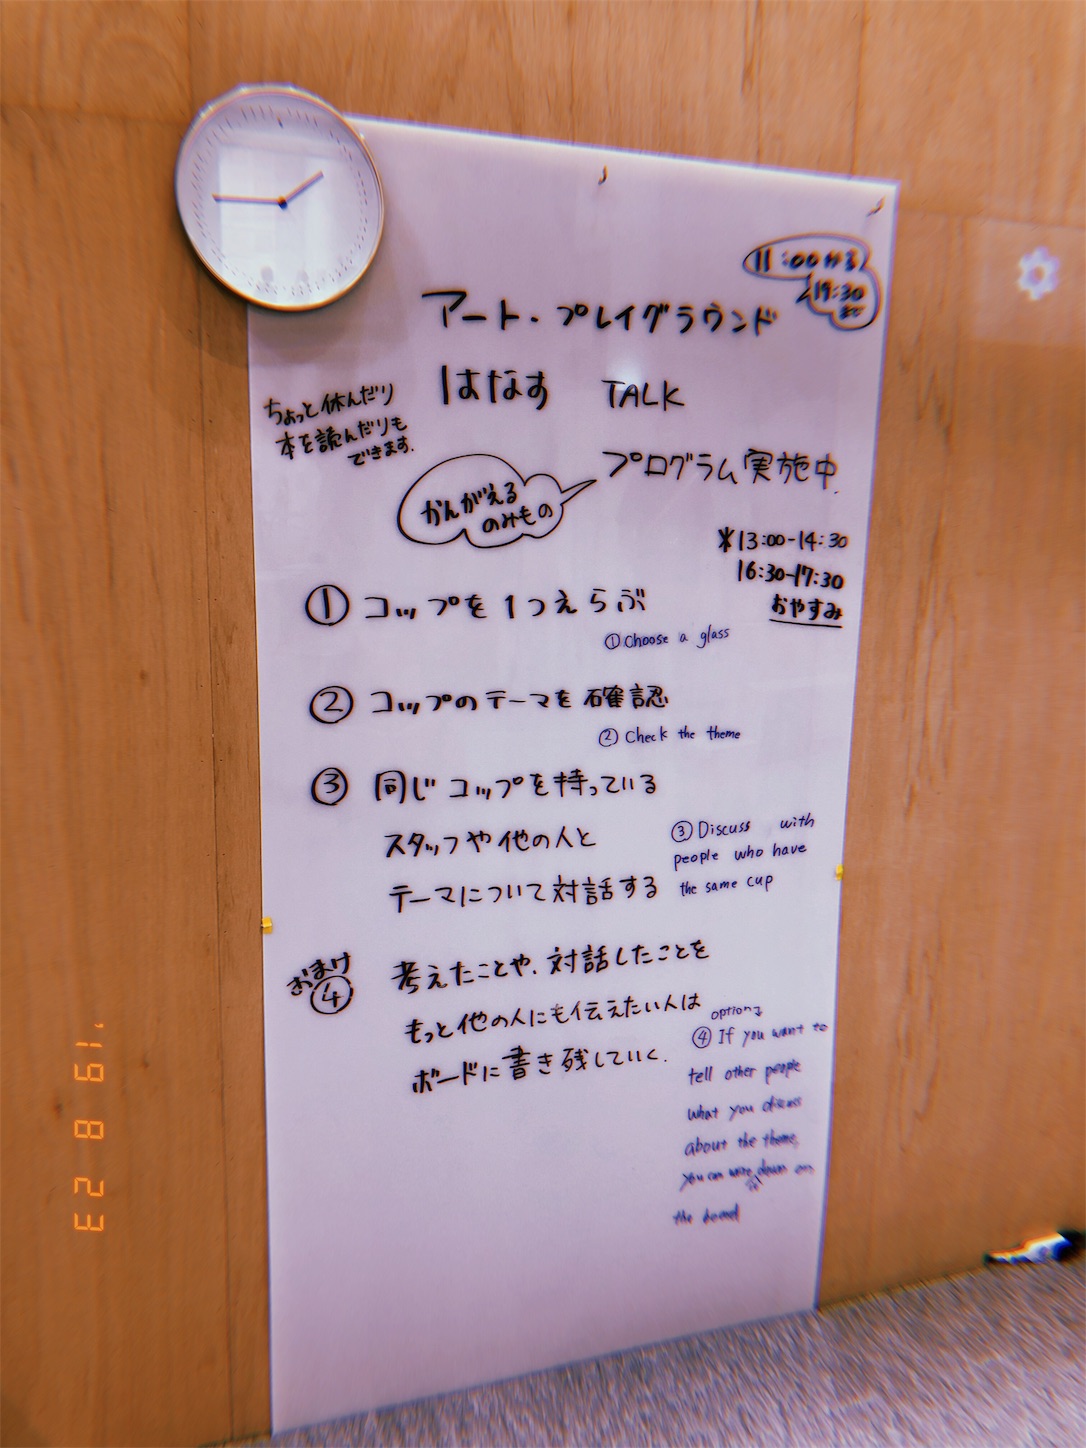 11:00から
19:30
まで
アート・プレイグラウンド
はなす TALK
ちょっと休んだり
本を読んだりも
できます.
プログラム実施中.
かんがえる
のみもの
*13:00-14:30
16:30-17:30
おやすみ
① コップを1つえらぶ
① Choose a glass
② コップのテーマを確認
② Check the theme
③ 同じコップを持っている
スタッフや他の人と
テーマについて対話する
③ Discuss with
people who have
the same cup
おまけ
④ 考えたことや、対話したことを
もっと他の人にも伝えたい人は
ボードに書き残していく.
④ If you want to
tell other people
what you discuss
about the theme,
you can write down on
the board
'19 8 23